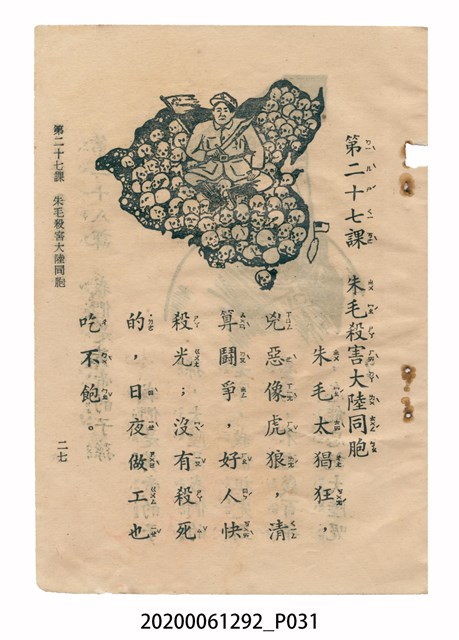 第二十七課　朱毛殺害大陸同胞
朱毛太猖狂，
兇惡像虎狼，清
算鬪爭，好人快
殺光；沒有殺死
的，日夜做工也
吃不飽。
第二十七課　朱毛殺害大陸同胞
二七
20200061292_P031